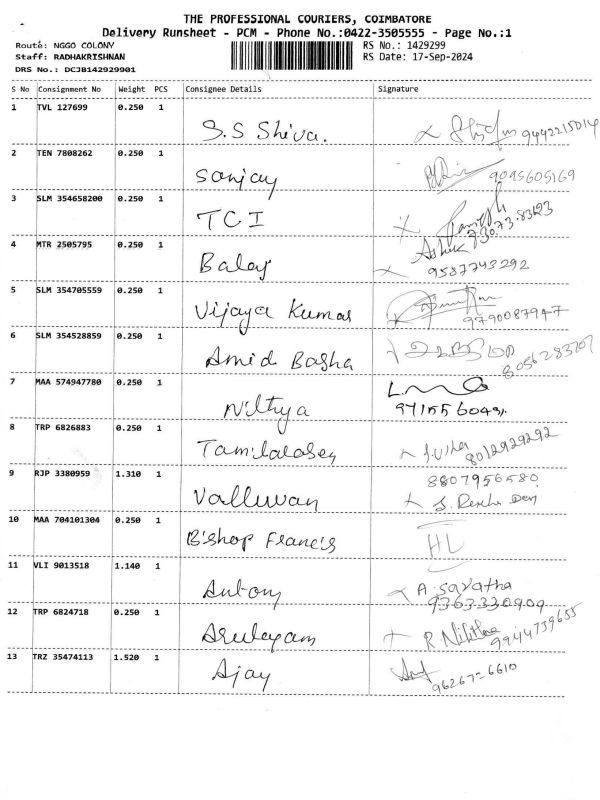 THE PROFESSIONAL COURIERS, COIMBATORE
Delivery Runsheet - PCM - Phone No.:0422-3505555 - Page No.:1
Route: NGGO COLONY
RS No.: 1429299
Staff: RADHAKRISHNAN
RS Date: 17-Sep-2024
DRS No.: DCJB142929901
S No Consignment No Weight PCS Consignee Details Signature
1 TVL 127699 0.250 1
S.S Shiva. 9442215014
2 TEN 7808262 0.250 1
Sanjay 9095605169
3 SLM 354658200 0.250 1
TCI
4 MTR 2505795 0.250 1
Balaj Ashok
9587743292
5 SLM 354705559 0.250 1
Vijaya Kumar
9790087947
6 SLM 354528859 0.250 1
Amid Basha
7 MAA 574947780 0.250 1
Nithya
8 TRP 6826883 0.250 1
J. Usha
8012929292
9 RJP 3380959 1.310 1
8807956580
Valluvan
10 MAA 704101304 0.250 1
Bishop Francis HL
11 VLI 9013518 1.140 1
Antony A. Savatha
9363330909
12 TRP 6824718 0.250 1
9944739655
13 TRZ 35474113 1.520 1
Ajay
96267-6610